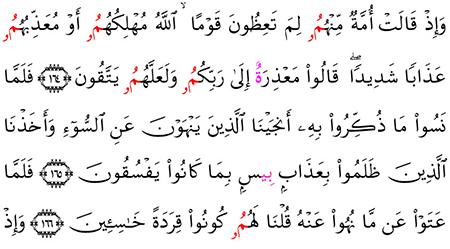 وَإِذۡ قَالَتۡ أُمَّةٞ مِّنۡهُمُۥ لِمَ تَعِظُونَ قَوۡمًا ۙ ٱللَّهُ مُهۡلِكُهُمُۥ أَوۡ مُعَذِّبُهُمُۥ
عَذَابٗا شَدِيدٗاۖ قَالُواْ مَعۡذِرَةٌ إِلَىٰ رَبِّكُمُۥ وَلَعَلَّهُمُۥ يَتَّقُونَ ١٦٤ فَلَمَّا
نَسُواْ مَا ذُكِّرُواْ بِهِۦٓ أَنجَيۡنَا ٱلَّذِينَ يَنۡهَوۡنَ عَنِ ٱلسُّوٓءِ وَأَخَذۡنَا
ٱلَّذِينَ ظَلَمُواْ بِعَذَابِۭ بِيسِۭ بِمَا كَانُواْ يَفۡسُقُونَ ١٦٥ فَلَمَّا
عَتَوۡاْ عَن مَّا نُهُواْ عَنۡهُ قُلۡنَا لَهُمُۥ كُونُواْ قِرَدَةً خَٰسِـِٔينَ ١٦٦ وَإِذۡ